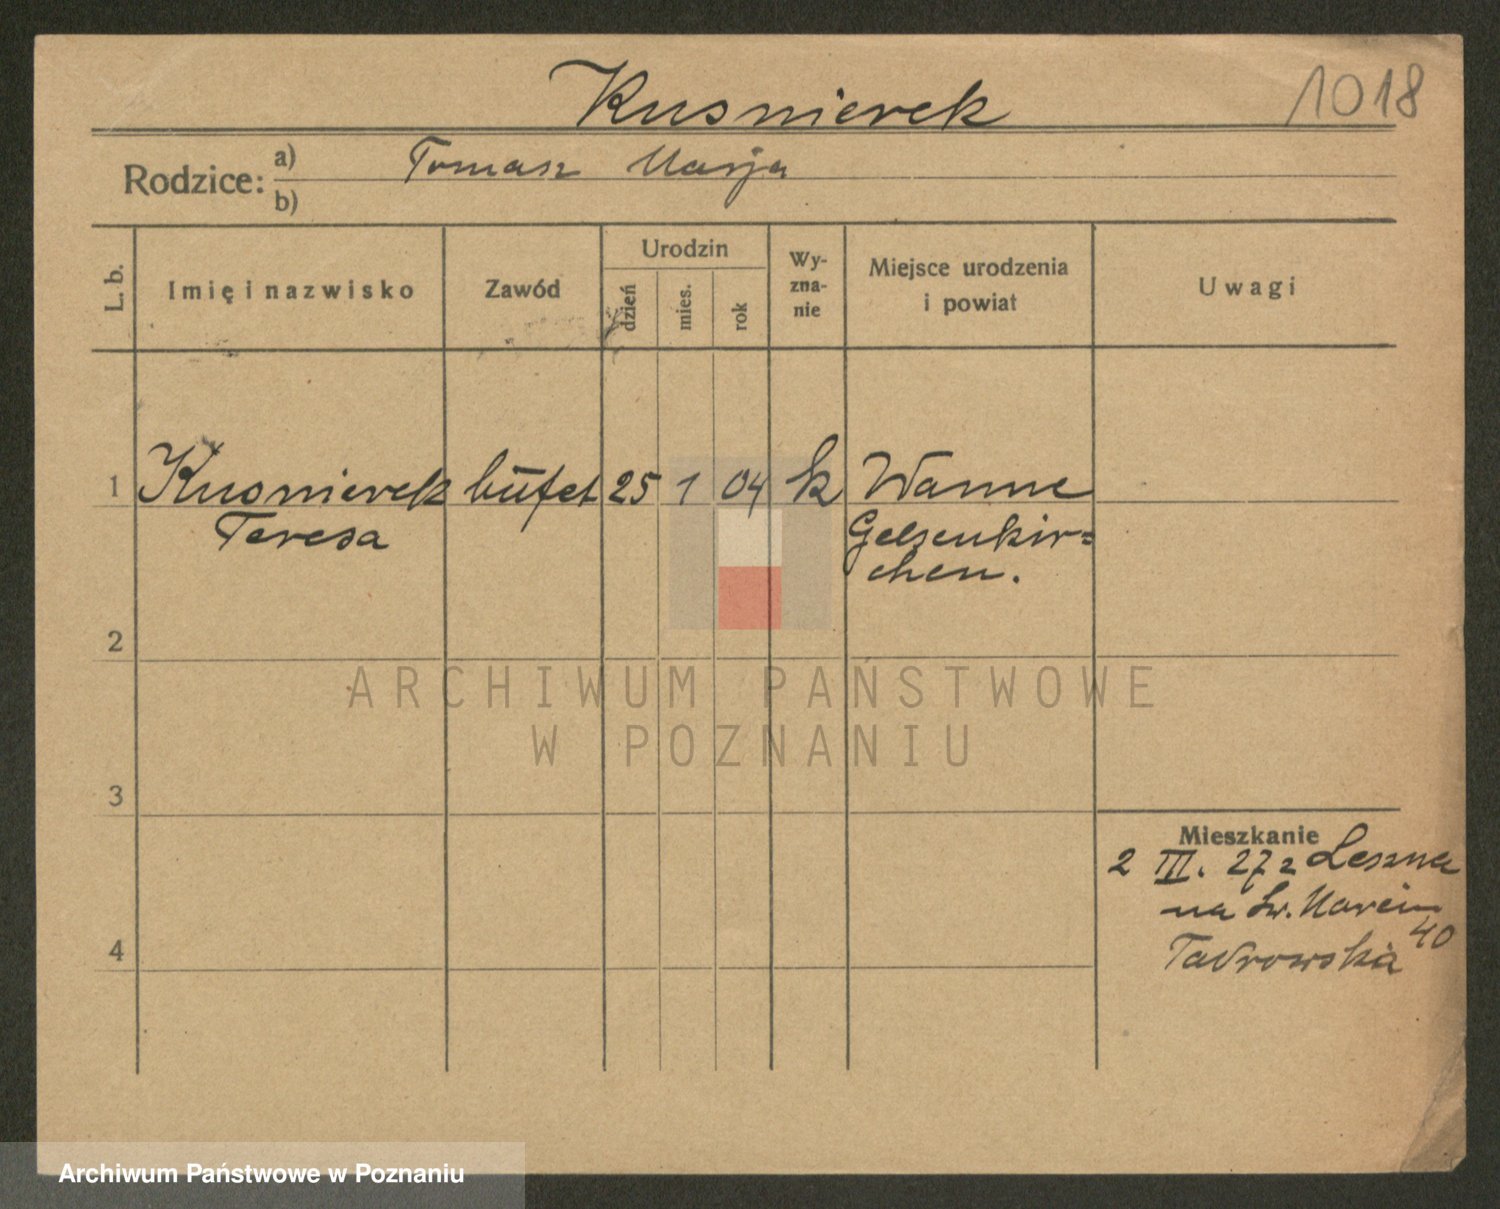 Kusnierek 1018
Rodzice: a) Tomasz Marja
b)
L. b. Imię i nazwisko Zawód Urodzin dzień mies. rok Wy-
zna-
nie Miejsce urodzenia
i powiat Uwagi
1 Kusnierek büfet 25 1 04 k Wanne
Teresa Gelsenkir=
chen.
2
ARCHIWUM PAŃSTWOWE
W POZNANIU
3
Mieszkanie
2 III. 27 z Leszna
na Św. Marcin
40
4
Archiwum Państwowe w Poznaniu